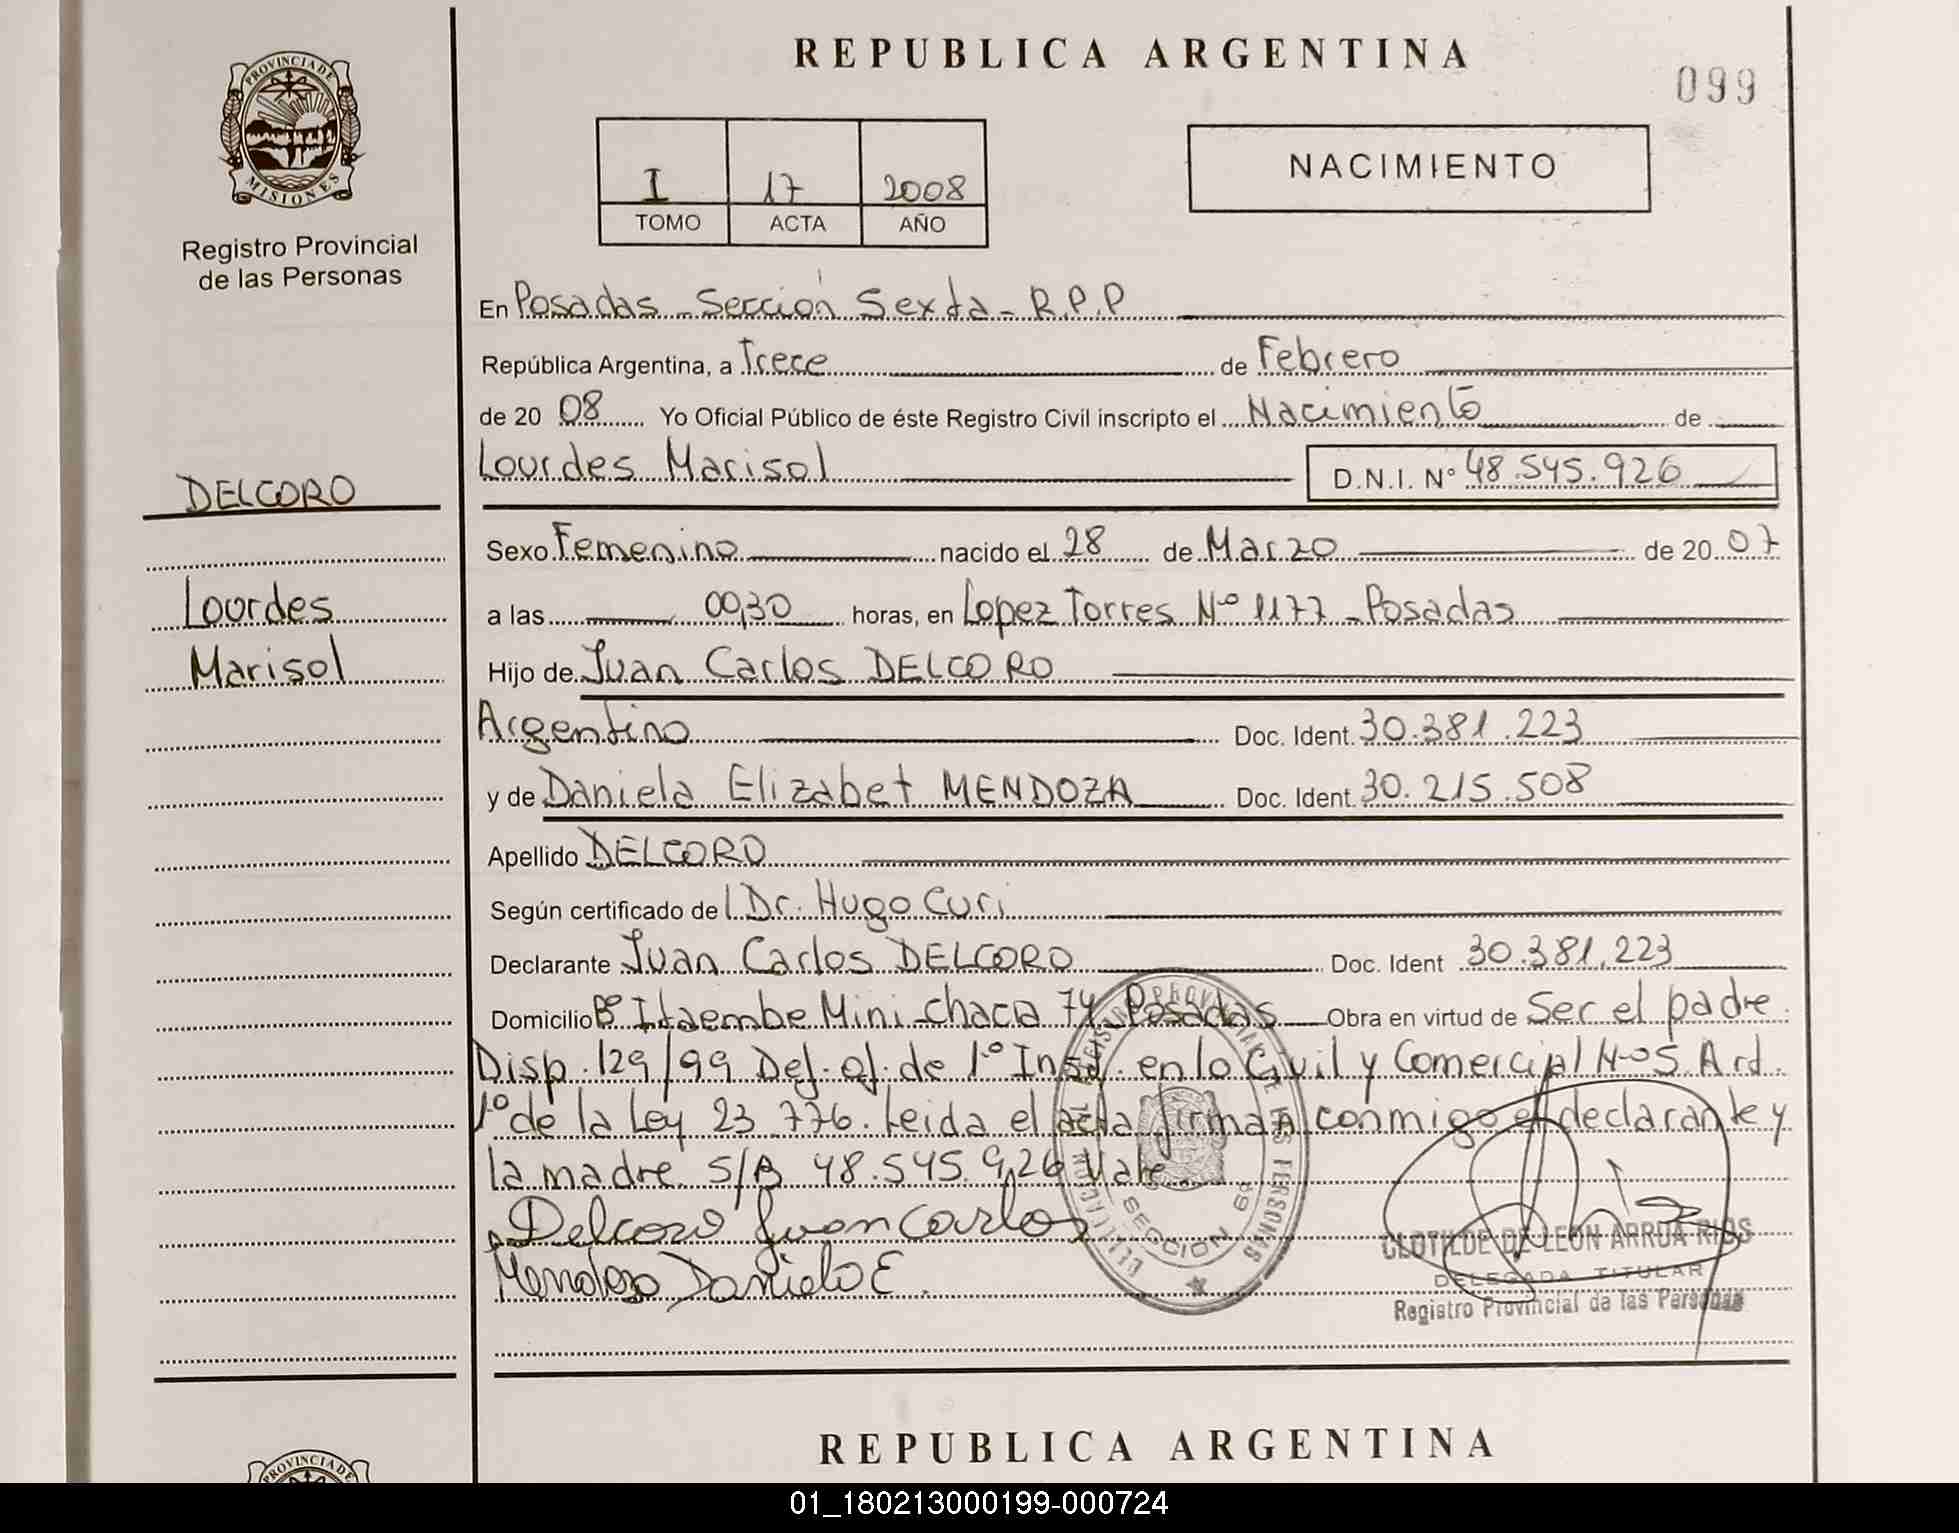 REPUBLICA ARGENTINA
099
PROVINCIA DE
MISIONES
Registro Provincial
de las Personas
I 17 2008
TOMO ACTA AÑO
NACIMIENTO
En Posadas - Sección Sexta - R.P.P
República Argentina, a Trece de Febrero
de 20 08 Yo Oficial Público de éste Registro Civil inscripto el Nacimiento de
Lourdes Marisol D.N.I. N° 48.545.926
DELCORO
Sexo Femenino nacido el 28 de Marzo de 20 07
Lourdes
a las 00,30 horas, en Lopez Torres Nº 1177 - Posadas
Marisol
Hijo de Juan Carlos DELCORO
Argentino Doc. Ident. 30.381.223
y de Daniela Elizabet MENDOZA Doc. Ident. 30.215.508
Apellido DELCORO
Según certificado del Dr. Hugo Curi
Declarante Juan Carlos DELCORO Doc. Ident 30.381.223
Domicilio Bº Itaembe Mini - chacra 74 - Posadas Obra en virtud de Ser el padre.
Disp. 129/99 Def. of. de 1º Inst. en lo Civil y Comercial Nº 5. Art.
1º de la Ley 23.776. Leida el acta firman conmigo el declarante y
la madre S/B 48.545.926 Vale.
Delcoro Juan Carlos
Mendoza Daniela E.
SECCION 6º
CLOTILDE DE LEON ARRUA RIOS
DELEGADA TITULAR
Registro Provincial de las Personas
REPUBLICA ARGENTINA
PROVINCIA DE
01_180213000199-000724